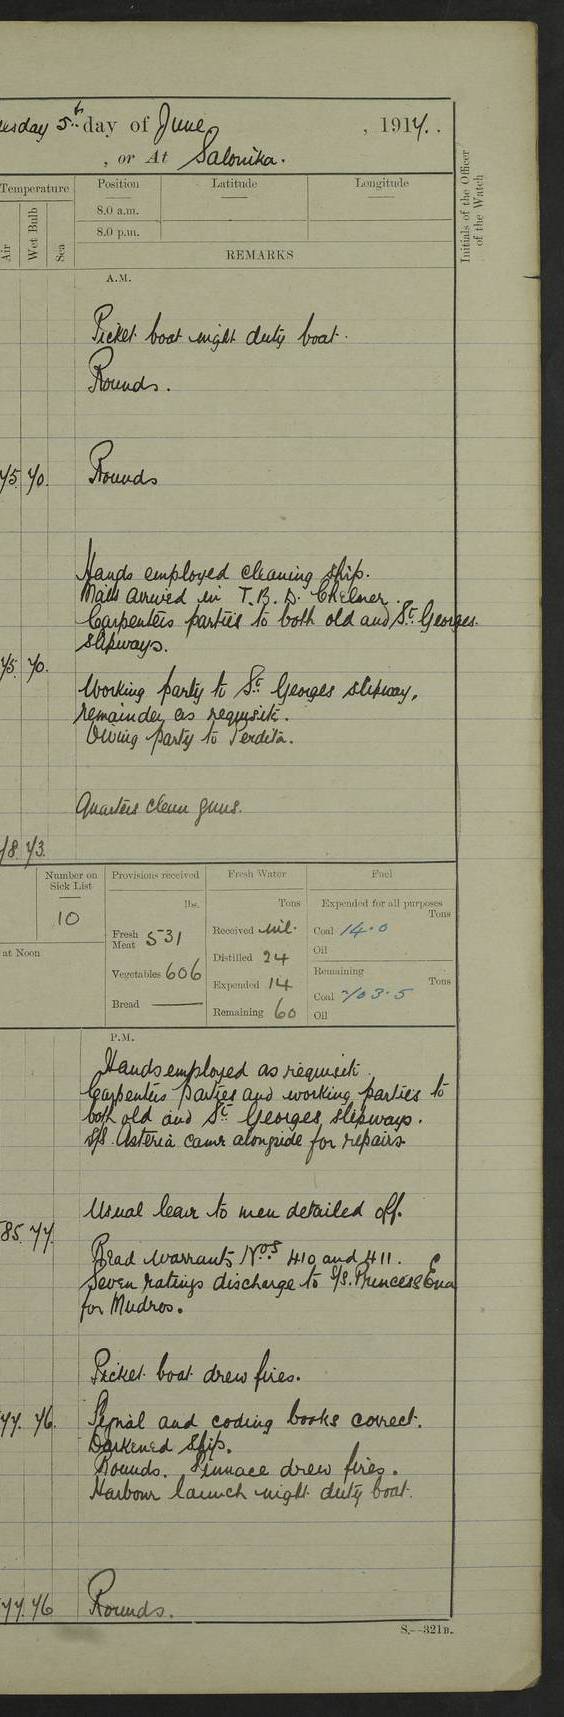 5th day of June, 1917.
, or At Salonika.
Temperature Position Latitude Longitude
Air Wet Bulb Sea
8.0 a.m.
8.0 p.m.
Initials of the Officer
of the Watch
REMARKS
A.M.
Picket boat night duty boat.
Rounds.
75 70. Rounds
Hands employed cleaning ship.
Mails arrived in T.B.D. Chelmer.
Carpenters parties to both old and St. Georges.
slipways.
75 70.
Working party to St. Georges slipway,
remainder as requisite.
Diving party to Perdita.
Quarters clean guns.
78. 73.
Number on
Sick List
10
at Noon
Provisions received
lbs.
Fresh
Meat 531
Vegetables 606
Bread —
Fresh Water
Tons
Received Nil.
Distilled 24
Expended 14
Remaining 60
Fuel
Expended for all purposes
Tons
Coal 14.0
Oil
Remaining
Tons
Coal 703.5
Oil
P.M.
Hands employed as requisite.
Carpenters Parties and working parties to
both old and St. Georges slipways.
S/S. Asteria came alongside for repairs.
Usual leave to men detailed off.
85. 77.
Read Warrants Nos. 410 and 411.
Seven ratings discharge to S/S. Princess Ena
for Mudros.
Picket boat drew fires.
77. 76. Signal and coding books correct.
Darkened Ship.
Rounds. Pinnace drew fires.
Harbour launch night duty boat.
77. 76 Rounds.
S.—321B.